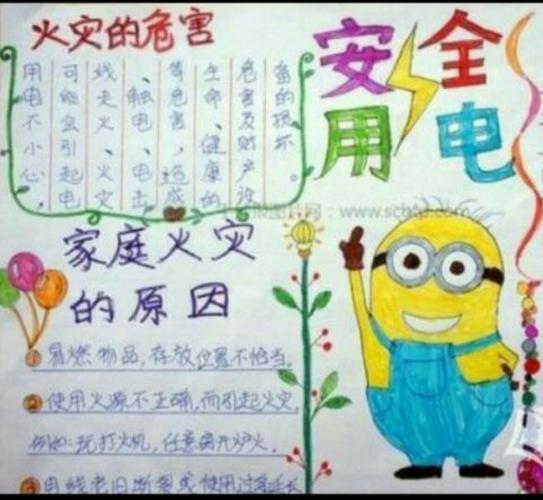 火灾的危害
安全用电
用电不小心,
可能会引起电
线走火、火灾
、触电、电击
等危害,造成
生命、健康的
危害及财产设
备的损坏.
家庭火灾
的原因
①易燃物品,存放位置不恰当。
②使用火源不正确,而引起火灾,
例如:玩打火机,任意离开炉火。
③电线老旧断裂或使用过多延长
www.scbao.com